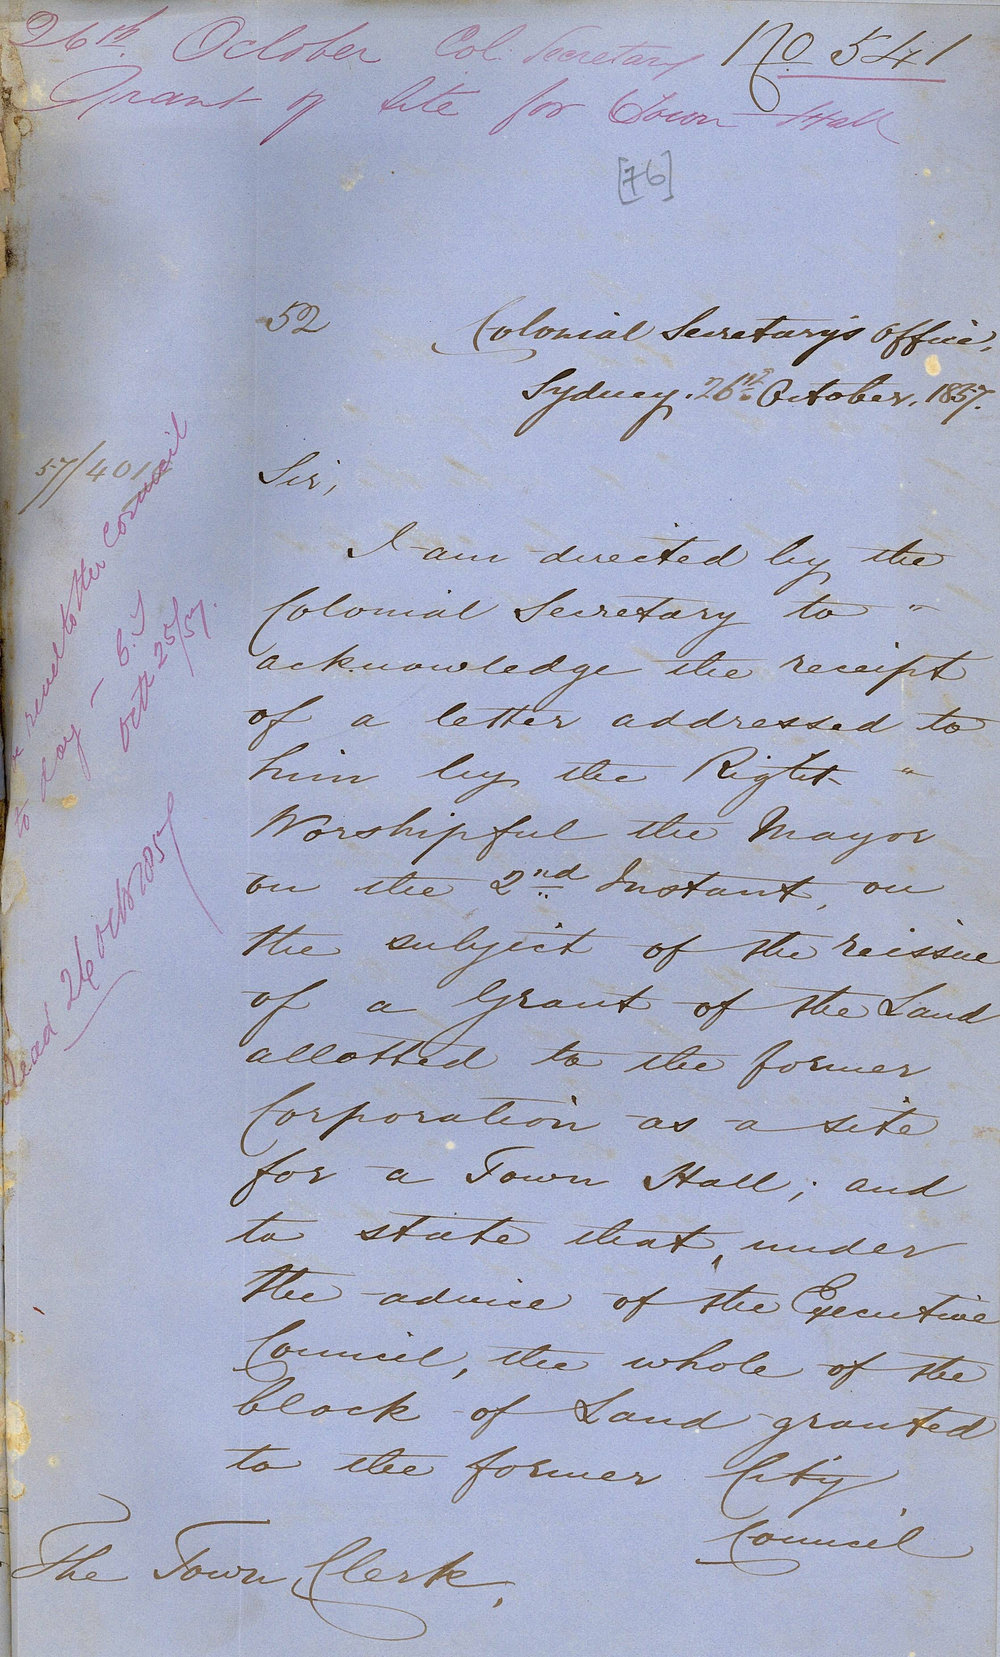 26th October Col. Secretary No 541
Grant of Site for Town Hall
[76]
52
Colonial Secretary's Office,
Sydney. 26th October. 1857.
57/401
Sir,
I am directed by the
Colonial Secretary to "
acknowledge the receipt
of a letter addressed to
him by the Right "
Worshipful the Mayor
on the 2nd Instant, on
the subject of the reissue
of a Grant of the Land
allotted to the former
Corporation as a site
for a Town Hall; and
to state that, under
the advice of the Executive
Council, the whole of the
block of Land granted
to the former City
Council
The Town Clerk.
read to the Council
to day —
Octr 25/57.
Read 26 Octr 1857